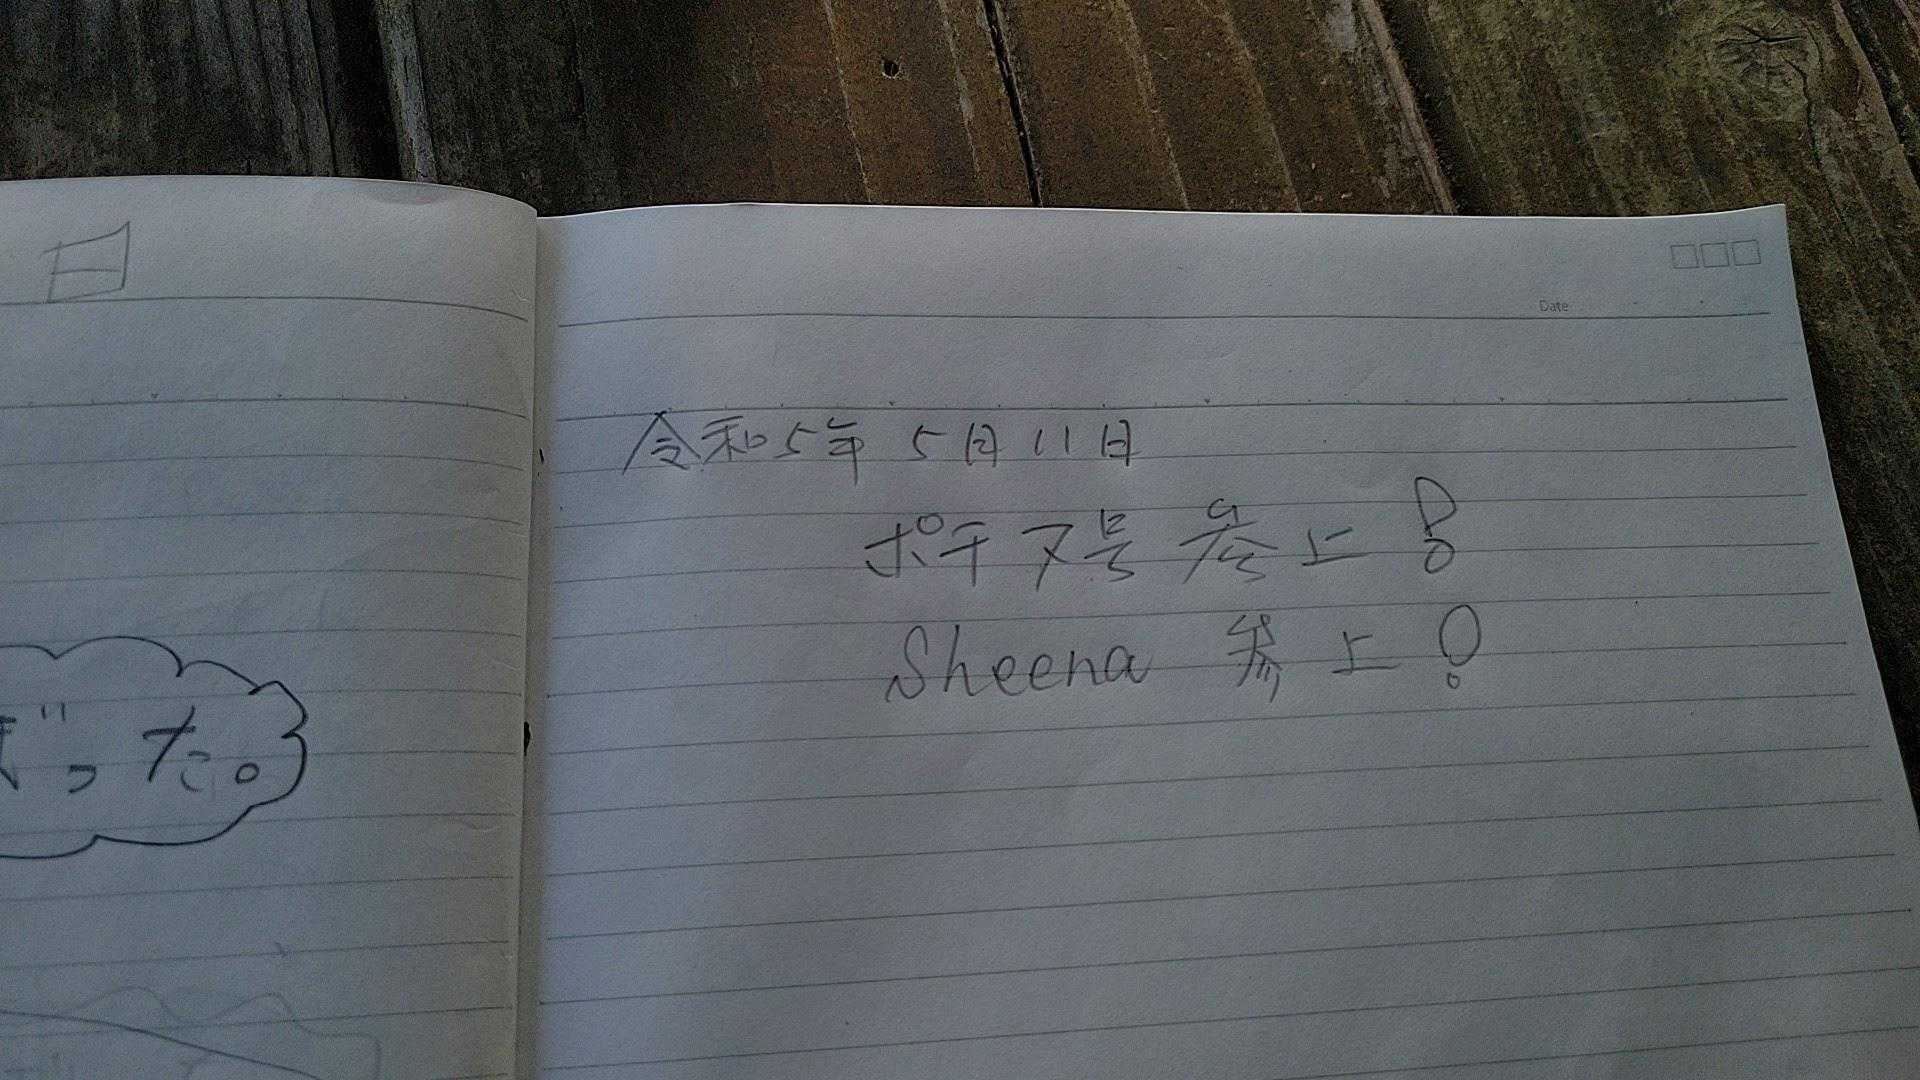 日
ずった。
Date
令和5年 5月11日
ポチ7号 参上!
Sheena 参上!